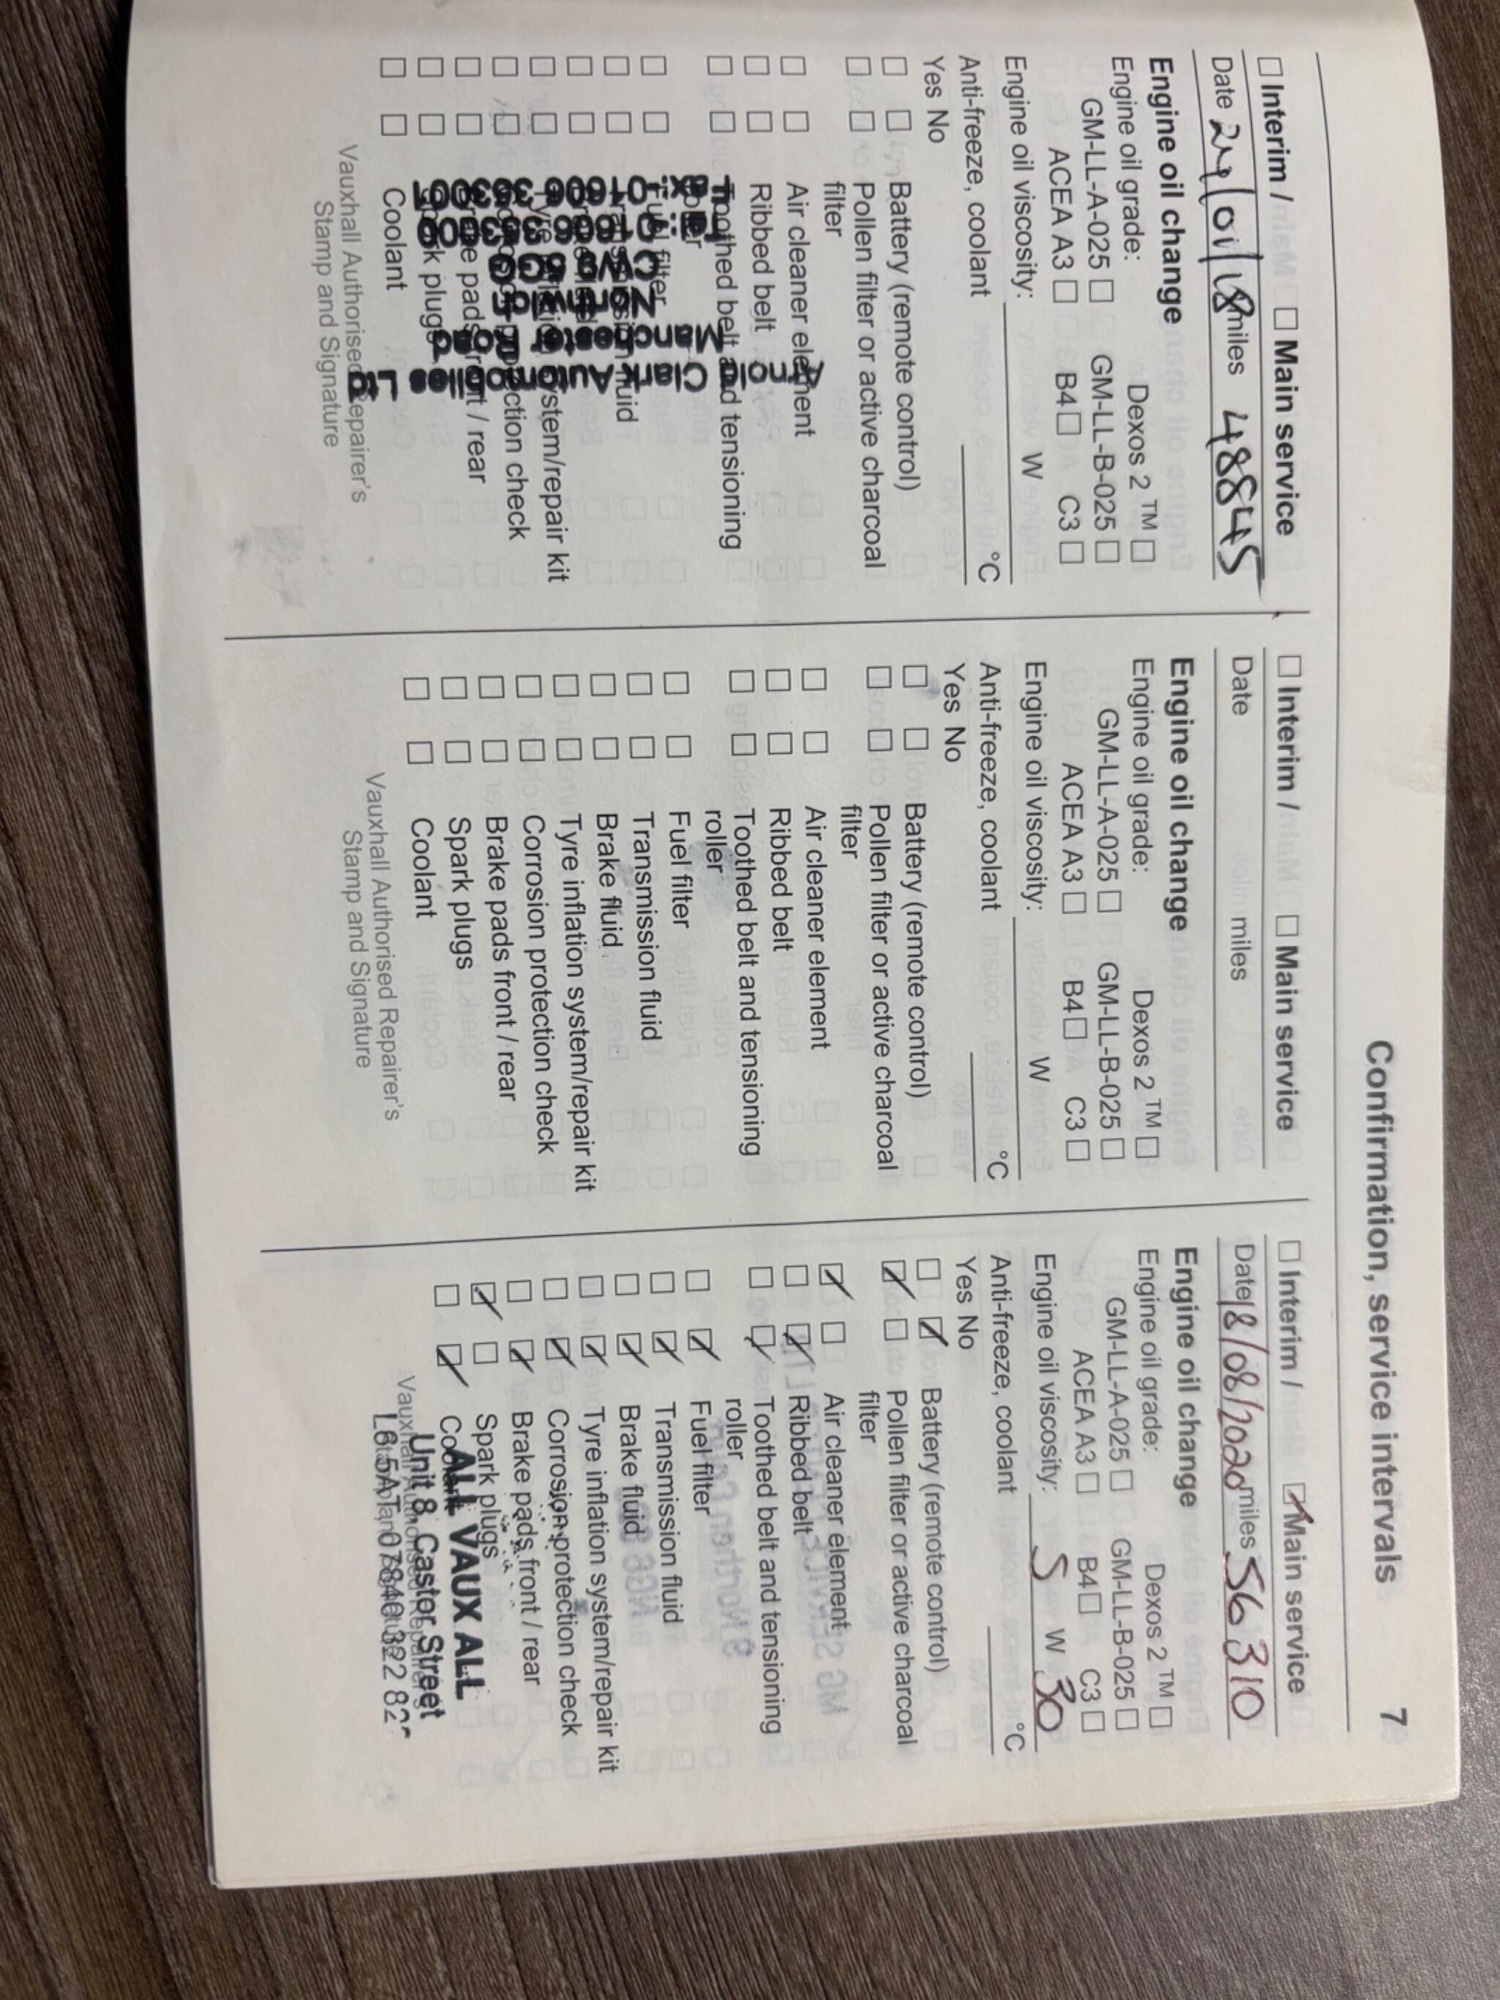 Confirmation, service intervals 7
☐ Interim / ☐ Main service
Date 24/01/18 miles 48845
Engine oil change
Engine oil grade: Dexos 2 ™ ☐
GM-LL-A-025 ☐ GM-LL-B-025 ☐
ACEA A3 ☐ B4 ☐ C3 ☐
Engine oil viscosity: W
Anti-freeze, coolant °C
Yes No
☐ ☐ Battery (remote control)
☐ ☐ Pollen filter or active charcoal
filter
☐ ☐ Air cleaner element
☐ ☐ Ribbed belt
☐ ☐ Toothed belt and tensioning
roller
☐ ☐ Fuel filter
☐ ☐ fluid
☐ ☐
☐ ☐ Tyre system/repair kit
☐ ☐ protection check
☐ ☐ Brake pads front / rear
☐ ☐ Spark plugs
☐ ☐ Coolant
Vauxhall Authorised Repairer's
Stamp and Signature
Clark Automobiles Ltd
Manchester Road
☐ Interim / ☐ Main service
Date miles
Engine oil change
Engine oil grade: Dexos 2 ™ ☐
GM-LL-A-025 ☐ GM-LL-B-025 ☐
ACEA A3 ☐ B4 ☐ C3 ☐
Engine oil viscosity: W
Anti-freeze, coolant °C
Yes No
☐ ☐ Battery (remote control)
☐ ☐ Pollen filter or active charcoal
filter
☐ ☐ Air cleaner element
☐ ☐ Ribbed belt
☐ ☐ Toothed belt and tensioning
roller
☐ ☐ Fuel filter
☐ ☐ Transmission fluid
☐ ☐ Brake fluid
☐ ☐ Tyre inflation system/repair kit
☐ ☐ Corrosion protection check
☐ ☐ Brake pads front / rear
☐ ☐ Spark plugs
☐ ☐ Coolant
Vauxhall Authorised Repairer's
Stamp and Signature
☐ Interim / ☑ Main service
Date 18/08/2020 miles 56310
Engine oil change
Engine oil grade: Dexos 2 ™ ☐
GM-LL-A-025 ☐ GM-LL-B-025 ☐
ACEA A3 ☐ B4 ☐ C3 ☐
Engine oil viscosity: 5 W 30
Anti-freeze, coolant °C
Yes No
☐ ☑ Battery (remote control)
☑ ☐ Pollen filter or active charcoal
filter
☑ ☐ Air cleaner element
☐ ☑ Ribbed belt
☐ ☑ Toothed belt and tensioning
roller
☐ ☑ Fuel filter
☐ ☑ Transmission fluid
☐ ☑ Brake fluid
☐ ☑ Tyre inflation system/repair kit
☐ ☑ Corrosion protection check
☐ ☑ Brake pads front / rear
☑ ☐ Spark plugs
☐ ☑ Coolant
ALL VAUX ALL
Unit 8 Castor Street
L6 5AT 07840 322 82